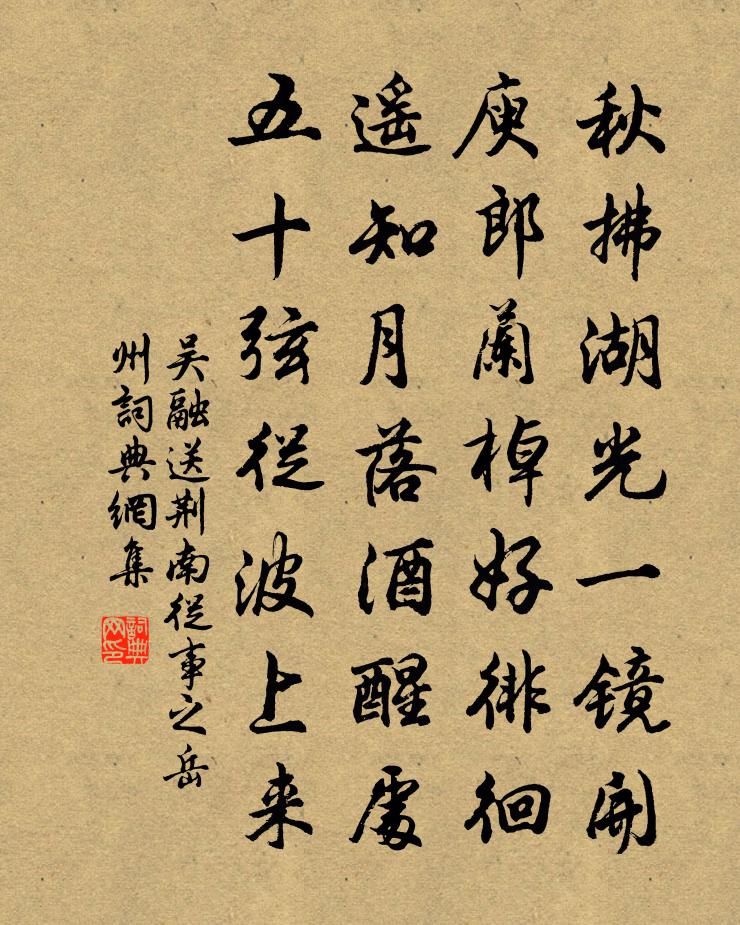 秋拂湖光一镜开
庾郎蘭棹好徘徊
遥知月落酒醒處
五十弦從波上来
吴融送荆南從事之岳
州詞典網集
詞典
网印